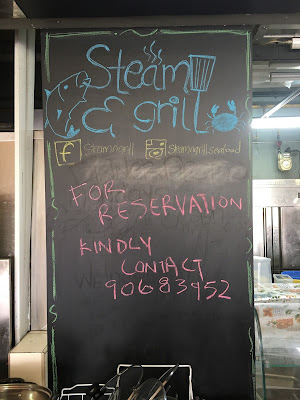 Steam
& grill
f Steamngrill Steamngrillseafood
FOR
RESERVATION
KINDLY
CONTACT
90683952